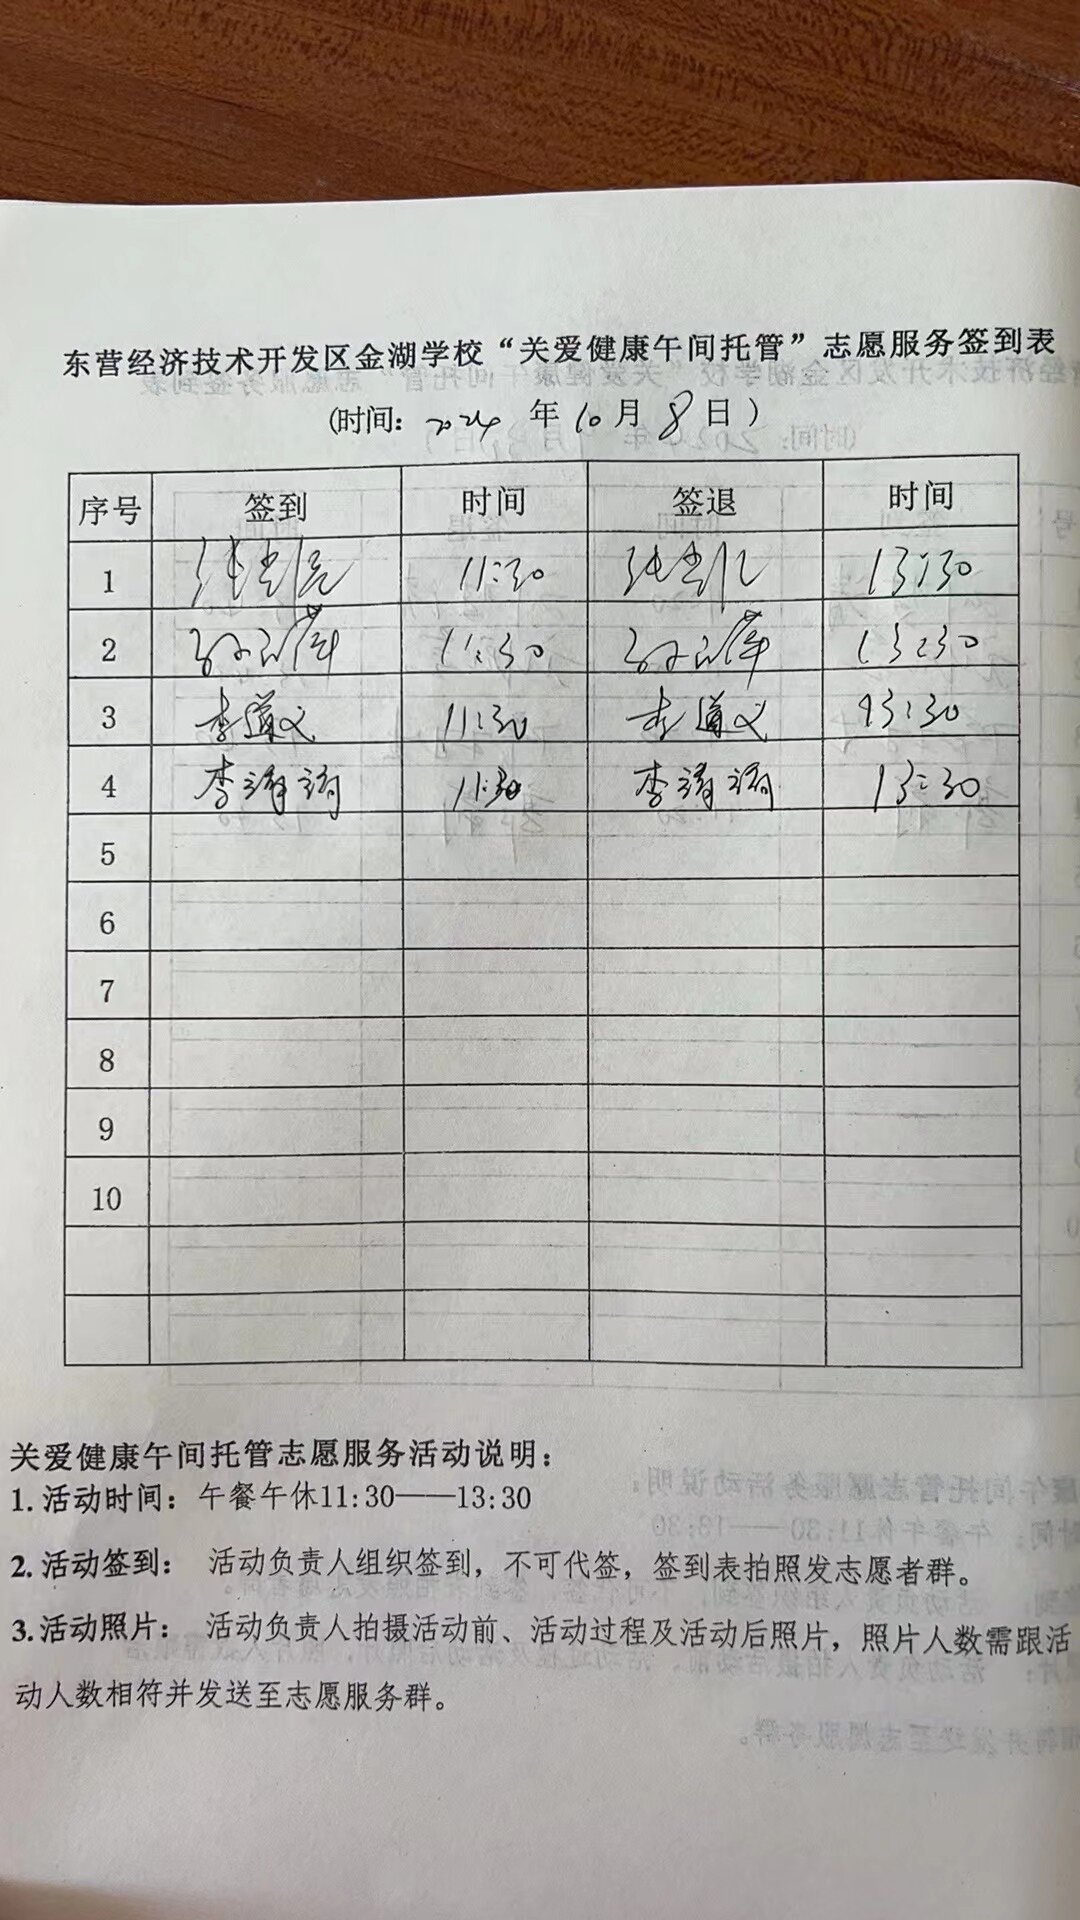 东营经济技术开发区金湖学校“关爱健康午间托管”志愿服务签到表
(时间：2024年10月8日)
序号 签到 时间 签退 时间
1 11:30 13:30
2 11:30 13:30
3 李道义 11:30 李道义 13:30
4 李 11:30 李 13:30
5
6
7
8
9
10
关爱健康午间托管志愿服务活动说明：
1.活动时间：午餐午休11:30——13:30
2.活动签到： 活动负责人组织签到，不可代签，签到表拍照发志愿者群。
3.活动照片： 活动负责人拍摄活动前、活动过程及活动后照片，照片人数需跟活
动人数相符并发送至志愿服务群。